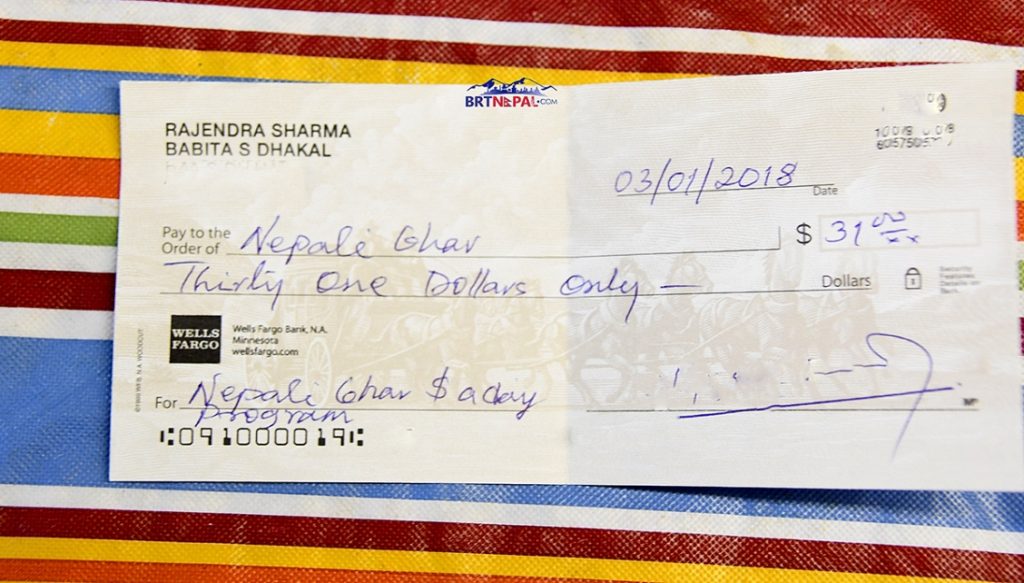 BRTNEPAL.COM
RAJENDRA SHARMA
BABITA S DHAKAL
03/01/2018
Date
Pay to the
Order of
Nepali Ghar
$ 31 00/xx
Thirty One Dollars Only —
Dollars
Security
Features
Details on
Back.
WELLS
FARGO
Wells Fargo Bank, N.A.
Minnesota
wellsfargo.com
For
Nepali Ghar $ a day
program
MP
⑆091000019⑆